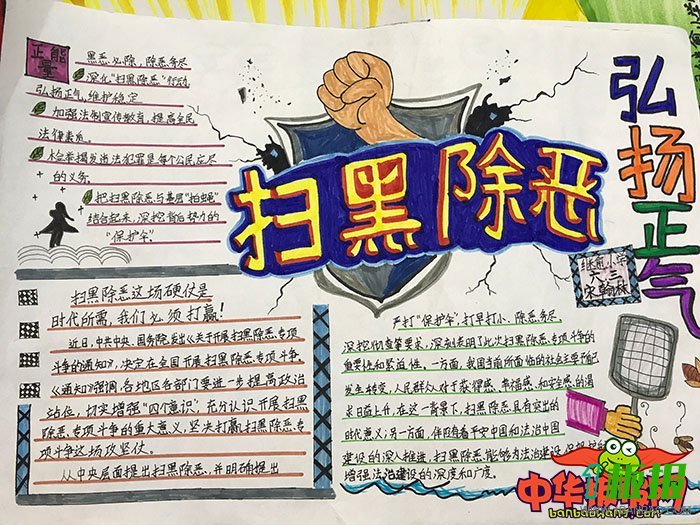 正能量
黑恶必除,除恶务尽
深化"扫黑除恶"行动,
弘扬正气,维护稳定
加强法制宣传教育,提高全民
法律素质。
检举揭发违法犯罪是每个公民应尽
的义务
把扫黑除恶与基层"拍蝇"
结合起来,深挖背后势力的
"保护伞"。
扫黑除恶
弘扬正气
扫黑除恶这场硬仗是
时代所需,我们必须打赢!
近日,中共中央、国务院发出《关于开展扫黑除恶专项
斗争的通知》,决定在全国开展扫黑除恶专项斗争。
《通知》强调,各地区各部门要进一步提高政治
站位,切实增强"四个意识",充分认识开展扫黑
除恶专项斗争的重大意义,坚决打赢扫黑除恶专
项斗争这场攻坚仗。
从中央层面提出扫黑除恶,并明确提出
严打"保护伞",打早打小、除恶务尽
深挖彻查等要求,深刻表明了此次扫黑除恶专项斗争的
重要性和紧迫性。一方面,我国当前所面临的社会主要矛盾已
发生转变,人民群众对于获得感、幸福感和安全感的渴
求日益上升,在这一背景下,扫黑除恶具有突出的
时代意义;另一方面,伴随着平安中国和法治中国
建设的深入推进,扫黑除恶能够为法治建设保驾护航
增强法治建设的深度和广度。
小学
六三
中华板报网
banbaowang.com